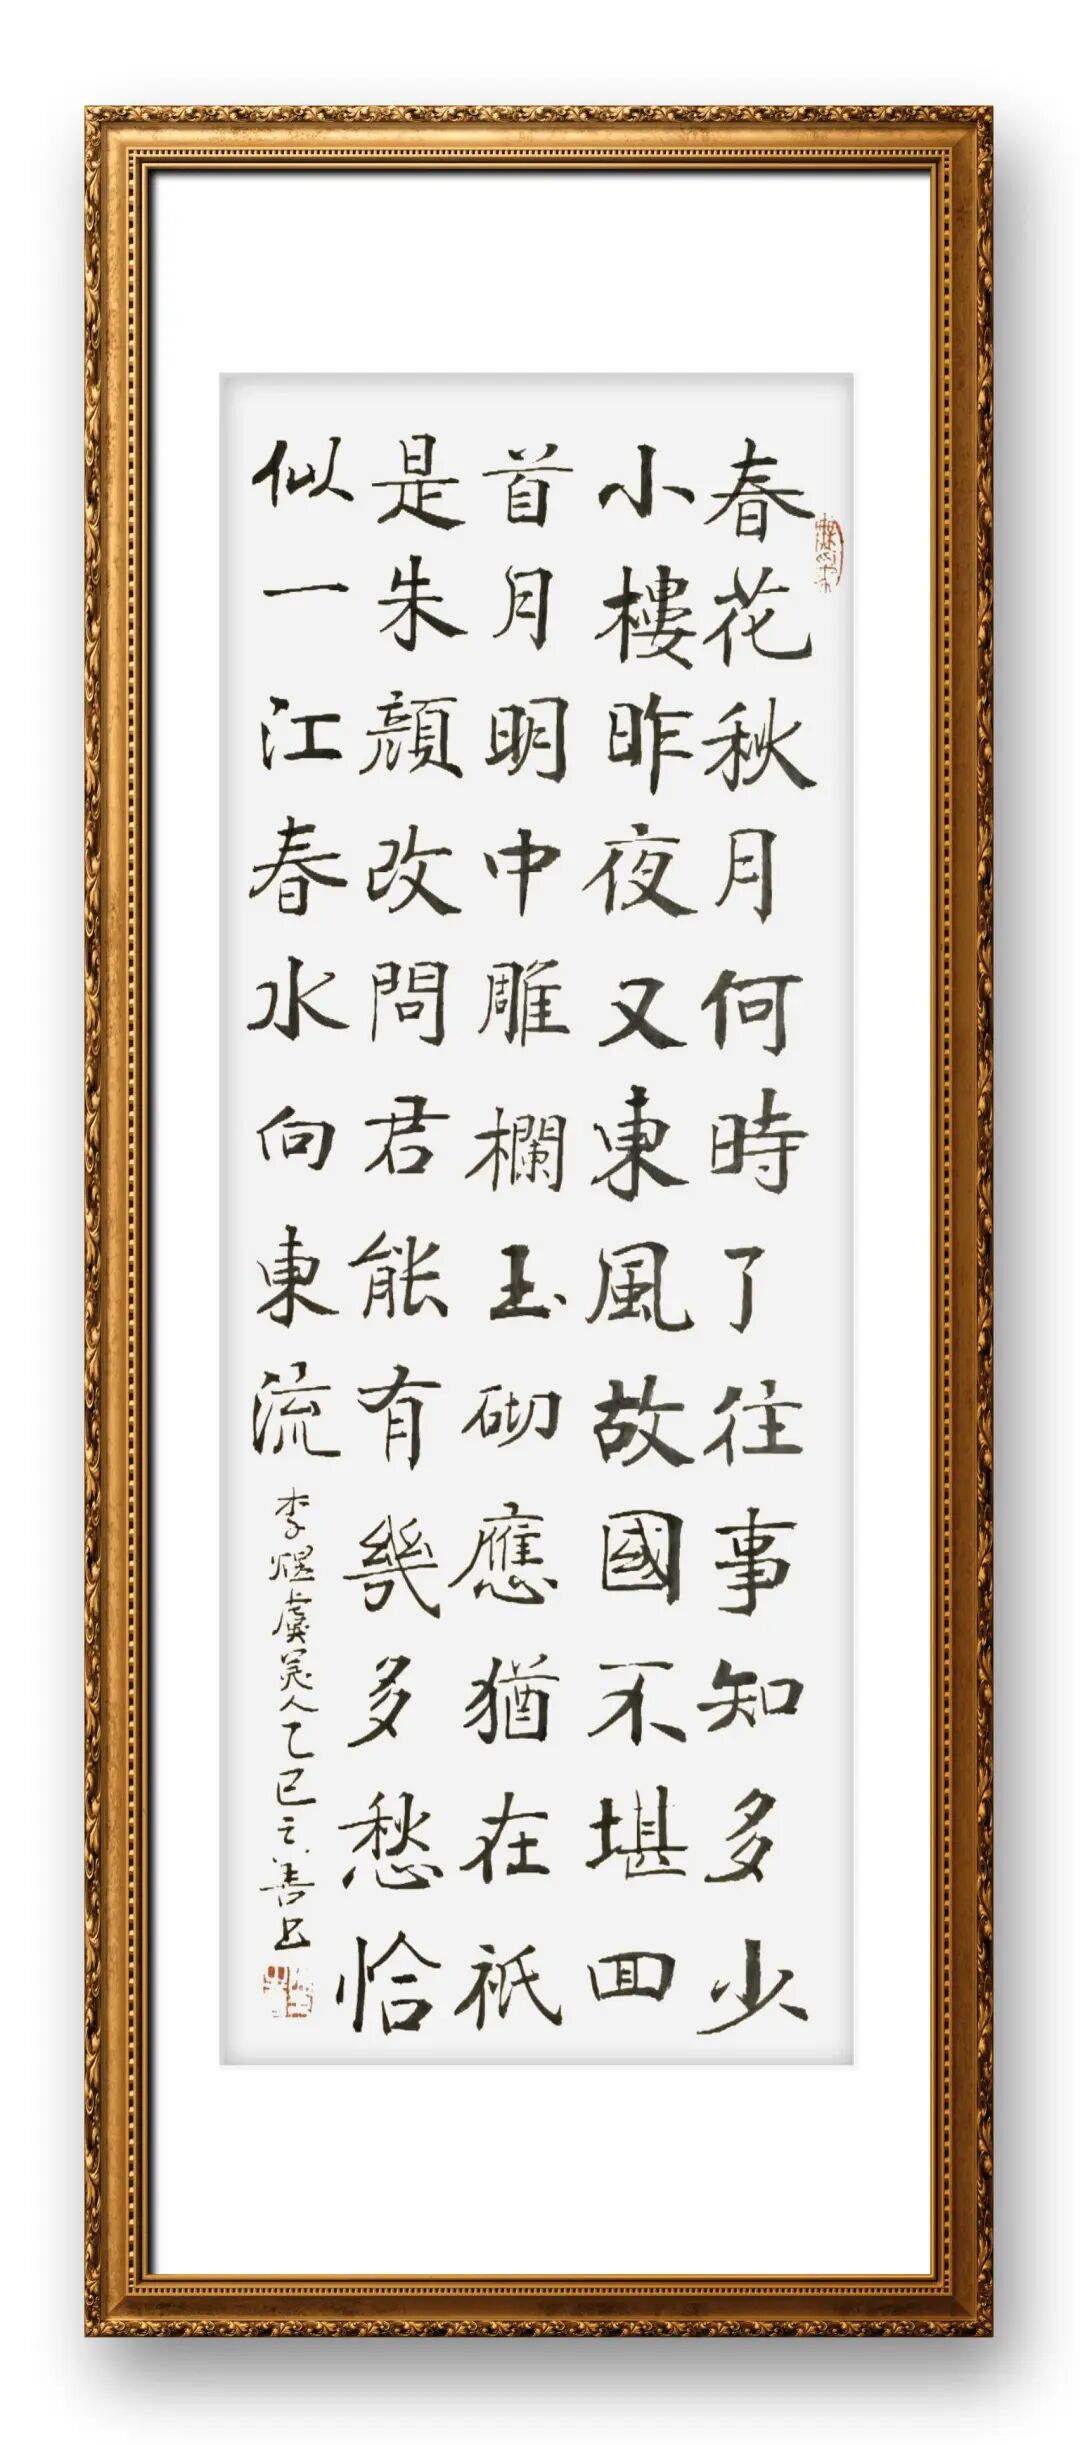 春花秋月何時了往事知多少
小樓昨夜又東風故國不堪回
首月明中雕欄玉砌應猶在祇
是朱顔改問君能有幾多愁恰
似一江春水向東流
李煜虞美人乙巳